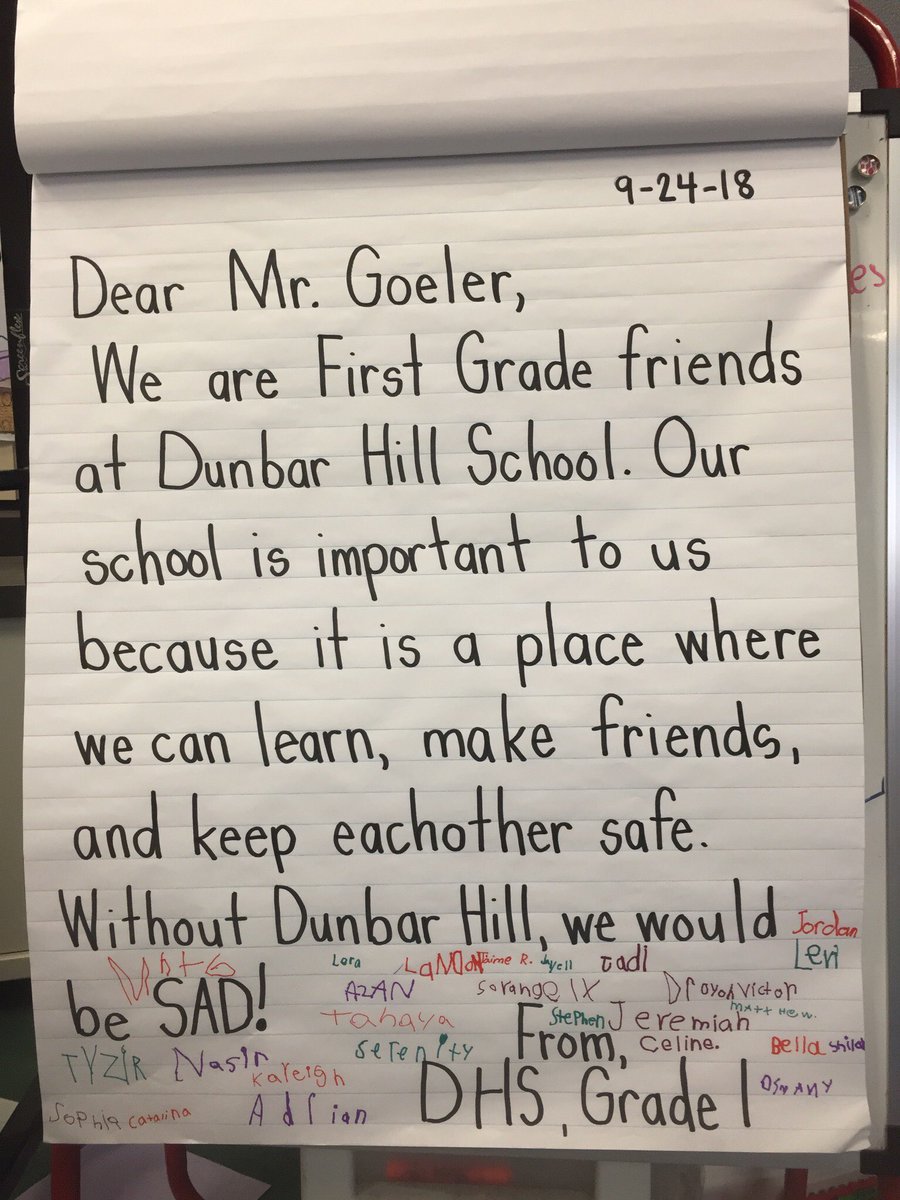 9-24-18
Dear Mr. Goeler,
We are First Grade friends
at Dunbar Hill School. Our
school is important to us
because it is a place where
we can learn, make friends,
and keep eachother safe.
Without Dunbar Hill, we would
Jordan
Levi
Lora
Jaime R.
be SAD!
AZAN
Victor
Tahaya
Stephen
Jeremiah
Matthew.
From,
Celine.
Bella
TYZIR
Nasir
Serenity
Kaleigh
DHS, Grade 1
OSMANY
Sophia
Catalina
Adrian
es
Screenflex